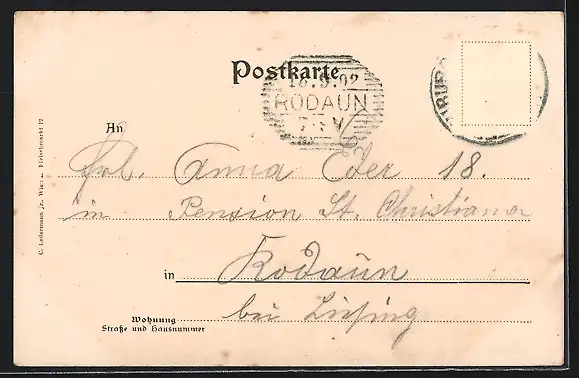 Postkarte
16.9.02
RODAUN
An
Frl. Anna Eder 18.
in Pension St. Christiana
in Rodaun
bei Liesing
Wohnung
Straße und Hausnummer
C. Ledermann jr. Wien I. Fleischmarkt 12